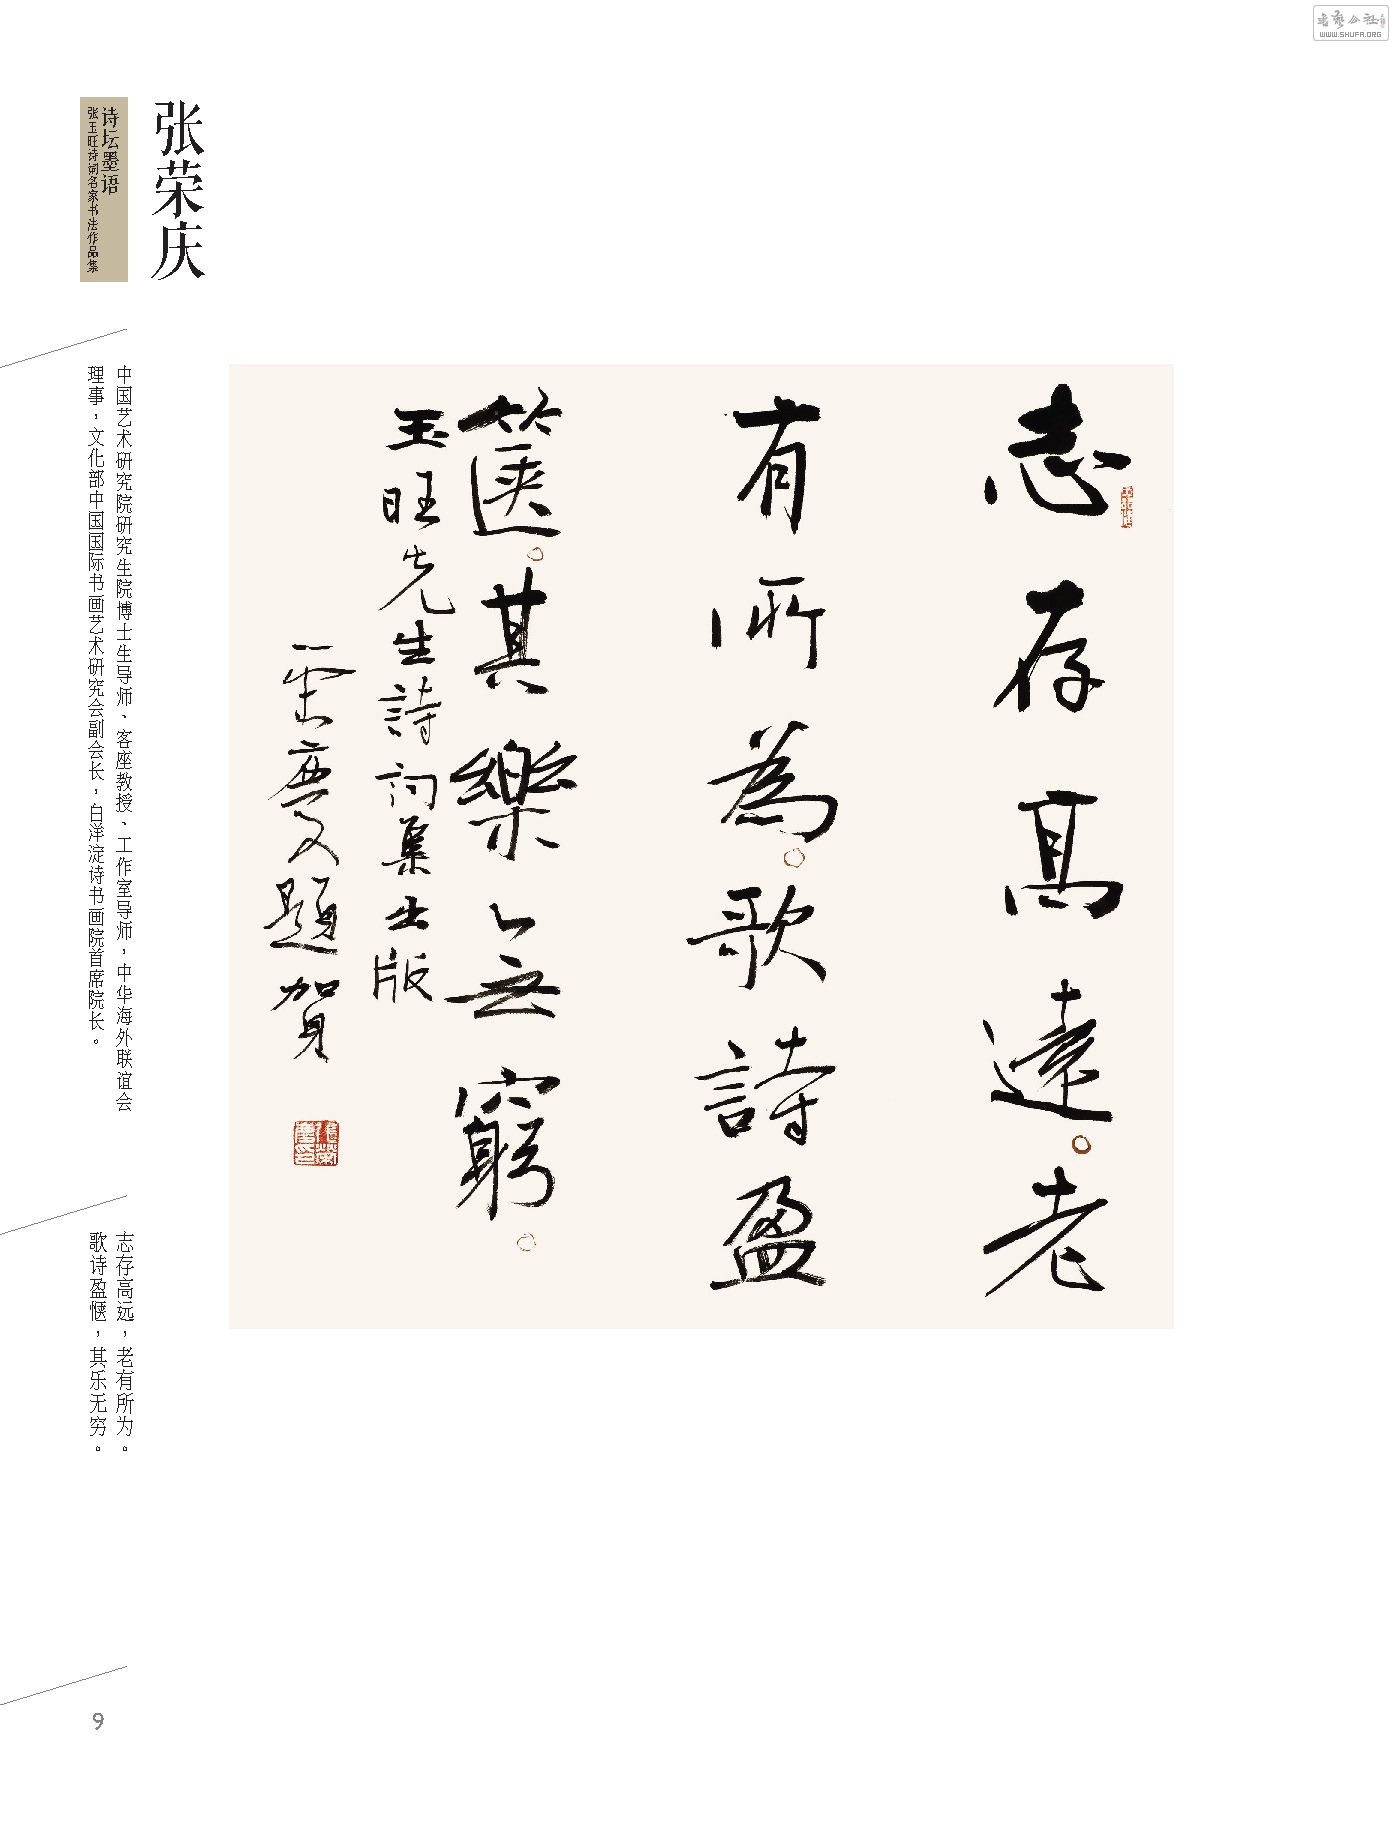 张荣庆
诗坛墨语
张玉旺诗词名家书法作品集
中国艺术研究院研究生院博士生导师、客座教授、工作室导师，中华海外联谊会
理事，文化部中国国际书画艺术研究会副会长，白洋淀诗书画院首席院长。
志存高远，老有所为。
歌诗盈惬，其乐无穷。
志存高遠。老
有所為。歌詩盈
篋。其樂無窮。
玉旺先生詩詞集出版
荣慶題賀
9
WWW.SHUFA.ORG